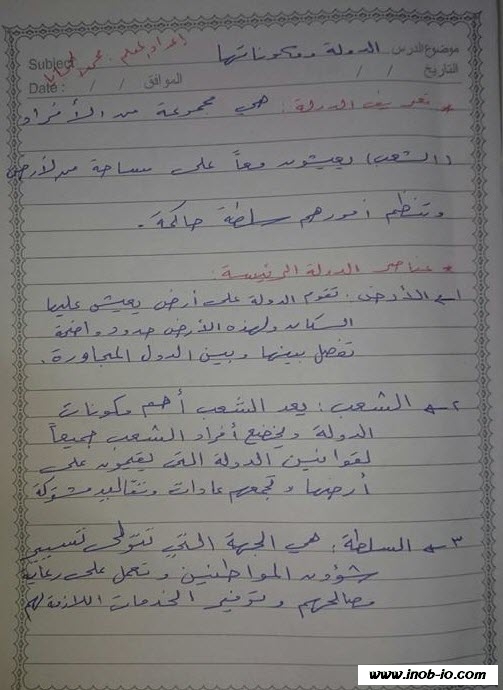 موضوع الدرس الدولة ومكوناتها Subject
التاريخ / / الموافق / / Date :
* تعريف الدولة : هي مجموعة من الأفراد
(الشعب) يعيشون معاً على مساحة من الأرض
وتنظم أمورهم سلطة حاكمة .
* عناصر الدولة الرئيسة :
١- الأرض : تقوم الدولة على أرض يعيش عليها
السكان ولهذه الأرض حدود واضحة
تفصل بينها وبين الدول المجاورة .
٢- الشعب : يعد الشعب أهم مكونات
الدولة ويخضع أفراد الشعب جميعاً
لقوانين الدولة التي يقيمون على
أرضها وتجمعهم عادات وتقاليد مشتركة
٣- السلطة : هي الجهة التي تتولى تسيير
شؤون المواطنين وتعمل على رعاية
مصالحهم وتوفير الخدمات اللازمة لهم
www.inob-io.com